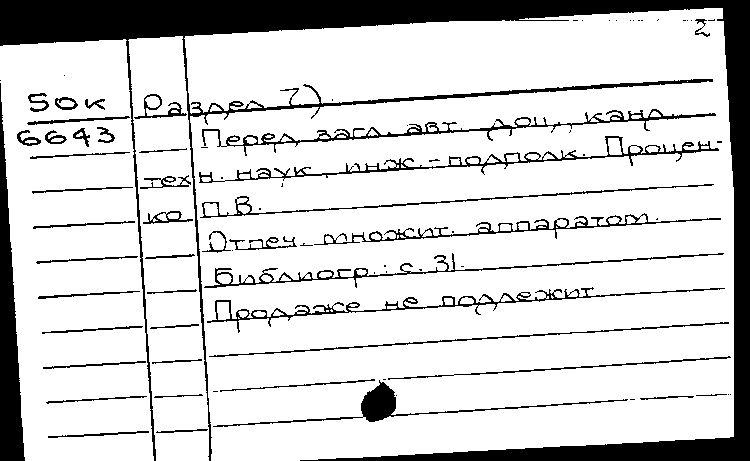 2
50к Раздел 7).
6643 Перед загл. авт. доц., канд.
техн. наук, инж.-подполк. Процен-
ко П.В.
Отпеч. множит. аппаратом.
Библиогр.: с. 31.
Продаже не подлежит